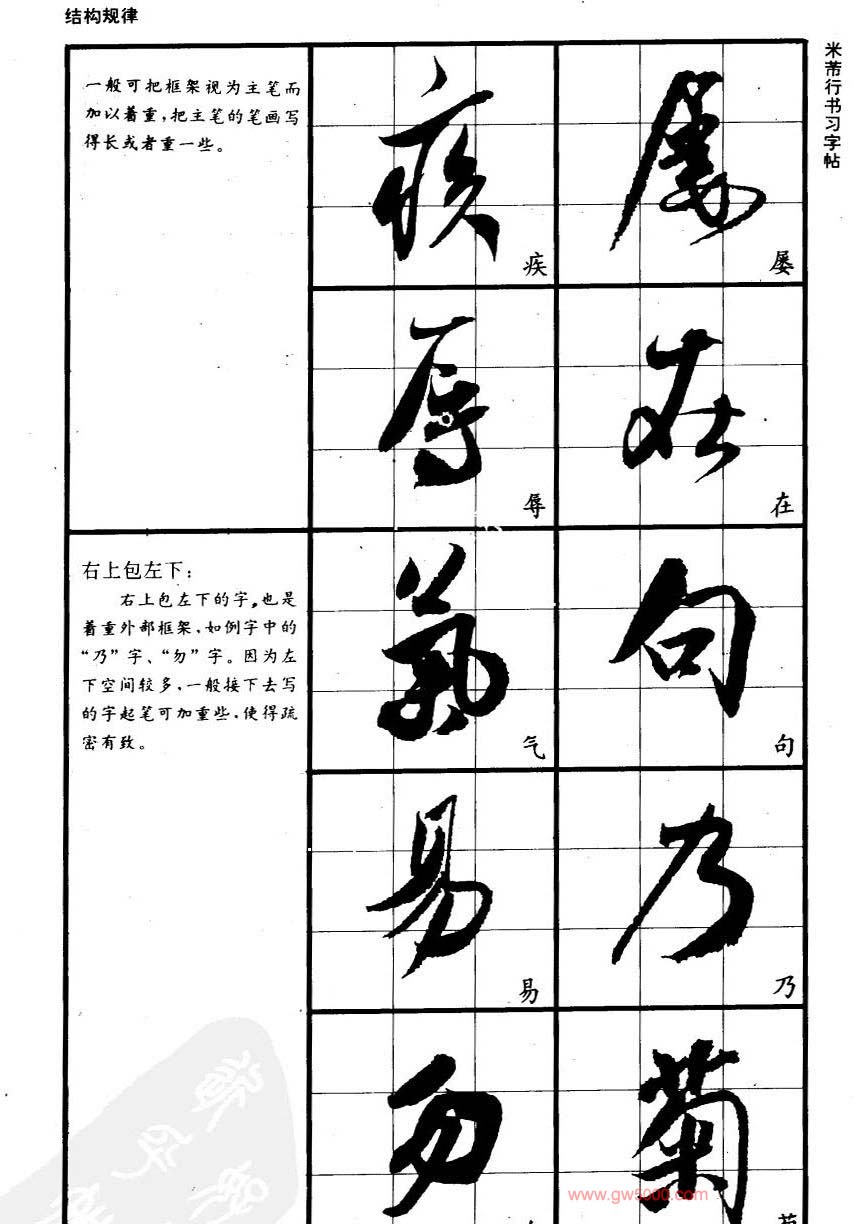 结构规律
米芾行书习字帖
一般可把框架视为主笔而
加以着重，把主笔的笔画写
得长或者重一些。
屡
疾
在
辱
右上包左下：
右上包左下的字，也是
着重外部框架，如例字中的
“乃”字、“勿”字。因为左
下空间较多，一般接下去写
的字起笔可加重些，使得疏
密有致。
句
气
乃
易
菊
勿
www.gw5000.com